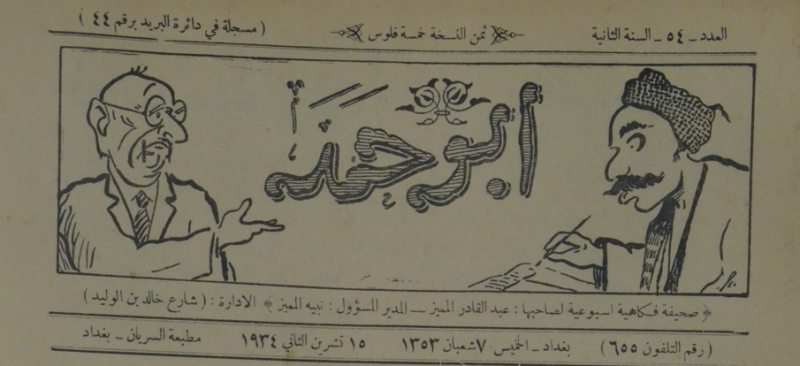 العدد - ٥٤ - السنة الثانية ثمن النسخة خمسة فلوس (مسجلة في دائرة البريد برقم ٤٤)
ابو حمد
صحيفة فكاهية اسبوعية لصاحبها : عبد القادر المميز — المدير المسؤول : نبيه المميز الادارة : (شارع خالد بن الوليد)
(رقم التلفون ٦٥٥) بغداد - الخميس ٧ شعبان ١٣٥٣ ١٥ تشرين الثاني ١٩٣٤ مطبعة السريان - بغداد